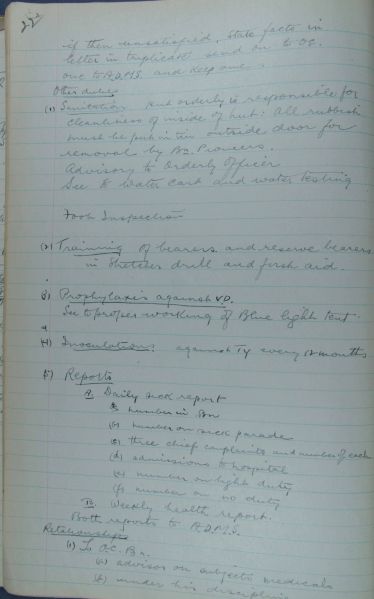 222
if then unsatisfied, State facts in
letter in triplicate send on to O.C.
one to A.D.M.S. and keep one.
Other duties
(1) Sanitation hut orderly is responsible for
cleanliness of inside of hut: All rubbish
must be put in tin outside door for
removal by Bn. Pioneers.
Advisory to Orderly Officer
See to water cart and water testing
Foot Inspection
(2) Training of bearers and reserve bearers
in Stretcher drill and first aid.
(3) Prophylaxis against V.D.
See to proper working of Blue light tent.
(4) Inoculation: against Ty every 12 months
(5) Reports
A Daily sick report
(a) number in Bn
(b) number on sick parade
(c) three chief complaints and number of each
(d) admissions to hospital
(e) number on light duty
(f) number on no duty
B Weekly health report.
Both reports to A.D.M.S.
Relationships
(1) To O.C. Bn.
(a) advisor on subjects medical
(b) under his discipline